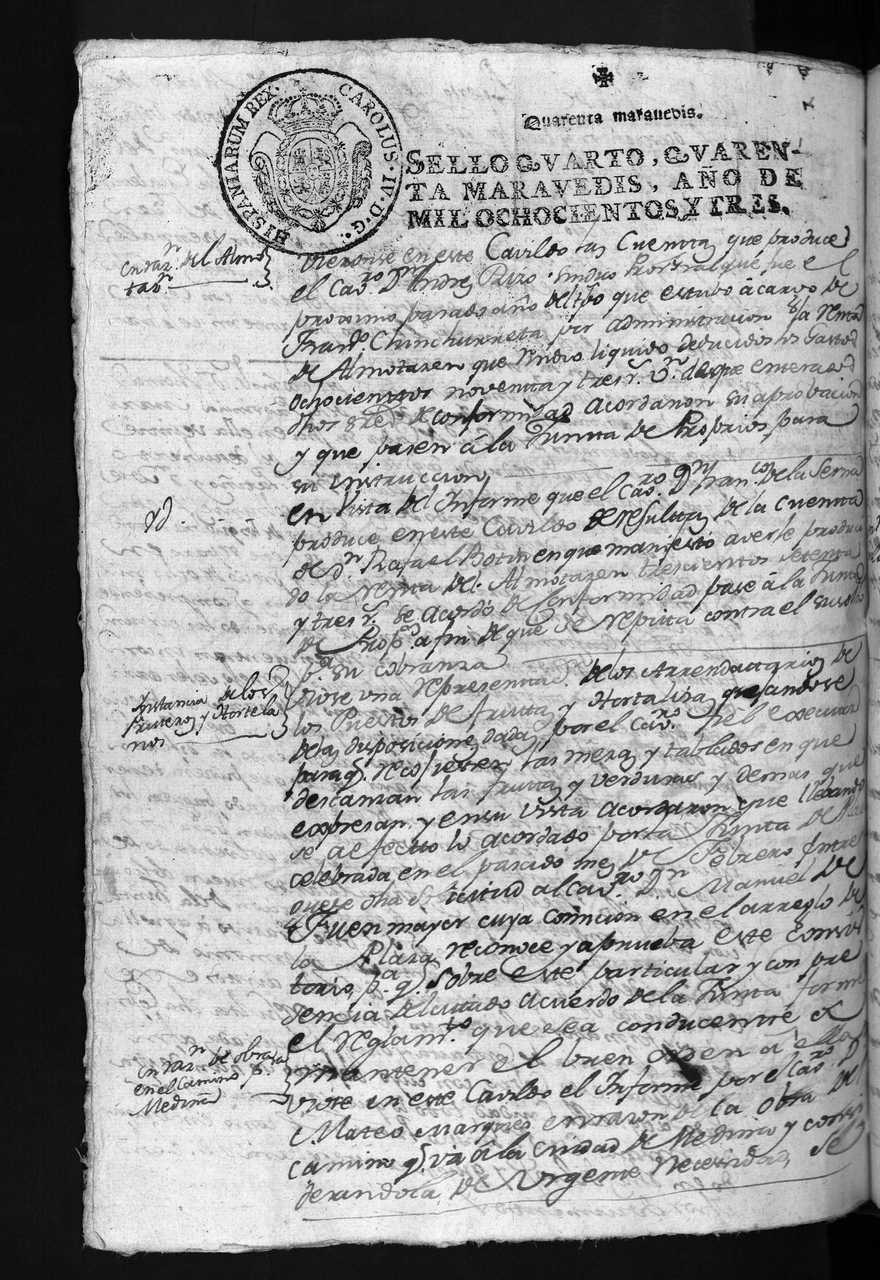 HISPANIARUM REX. CAROLUS·IV·D·G·
Quarenta maravedis.
SELLO QVARTO, QVAREN-
TA MARAVEDIS, AÑO DE
MIL OCHOCIENTOS Y TRES.
en raz.n del Almo
taz.n
Vieronse en este Cavildo las Cuentas que produce
el Cav.ro D.n Andres Sindico que fue el
proximo pasado año del tpo que estubo à cargo de
Fran.co Chinchurreta por administracion la Renta
de Almotazen que rindio liquido deducidos los Gastos
ochocientos noventa y tres r.s v.n de que enterados
dhos de conformidad acordaron su aprobacion
y que pasen â la Junta de Proprios para
su instruccion
Yd.
en Vista del Informe que el Cav.ro D.n Fran.co de la Serna
produce en este Cavildo de resultas de la Cuenta
de D.n Rafael Botin en que manifestó averle produci
do la Renta del Almotazen trescientos setenta
y tres r.s se Acordó de Conformidad pase â la Junta
de Prop.s a fin de que se repita contra el suso dho
p.a su cobranza
Instancia de los
fruteros y Hortela
nos
Viose una representa.n de los Arrendatarios de
los Puestos de fruta y Hortaliza quejandose
de las disposiciones dadas por el Cav.ro fiel executor
para q.e recojiesen las mesas y tablados en que
descansan las frutas y verduras y demas que
expresan, y en su vista acordaron que llebando
se a efecto lo acordado por la Junta de
celebrada en el pasado mes de Febrero
oyese otra solicitud al Cav.ro D.n Manuel de
Fuenmayor cuya comision en el arreglo de
la Plaza reconoce y aprueba este Consis
torio, p.a q.e sobre este particular y con pre
sencia del citado Acuerdo de la Junta forme
el reglam.to que sea conducente â
mantener el buen orden
en raz.n de obra
en el Camino p.a
Medina
Viose en este Cavildo el Informe por el Cav.ro D.n
Mateo Marques en razon de la Obra del
camino q.e va â la ciudad de Medina y consi
derandola de Urgente Necesidad, se